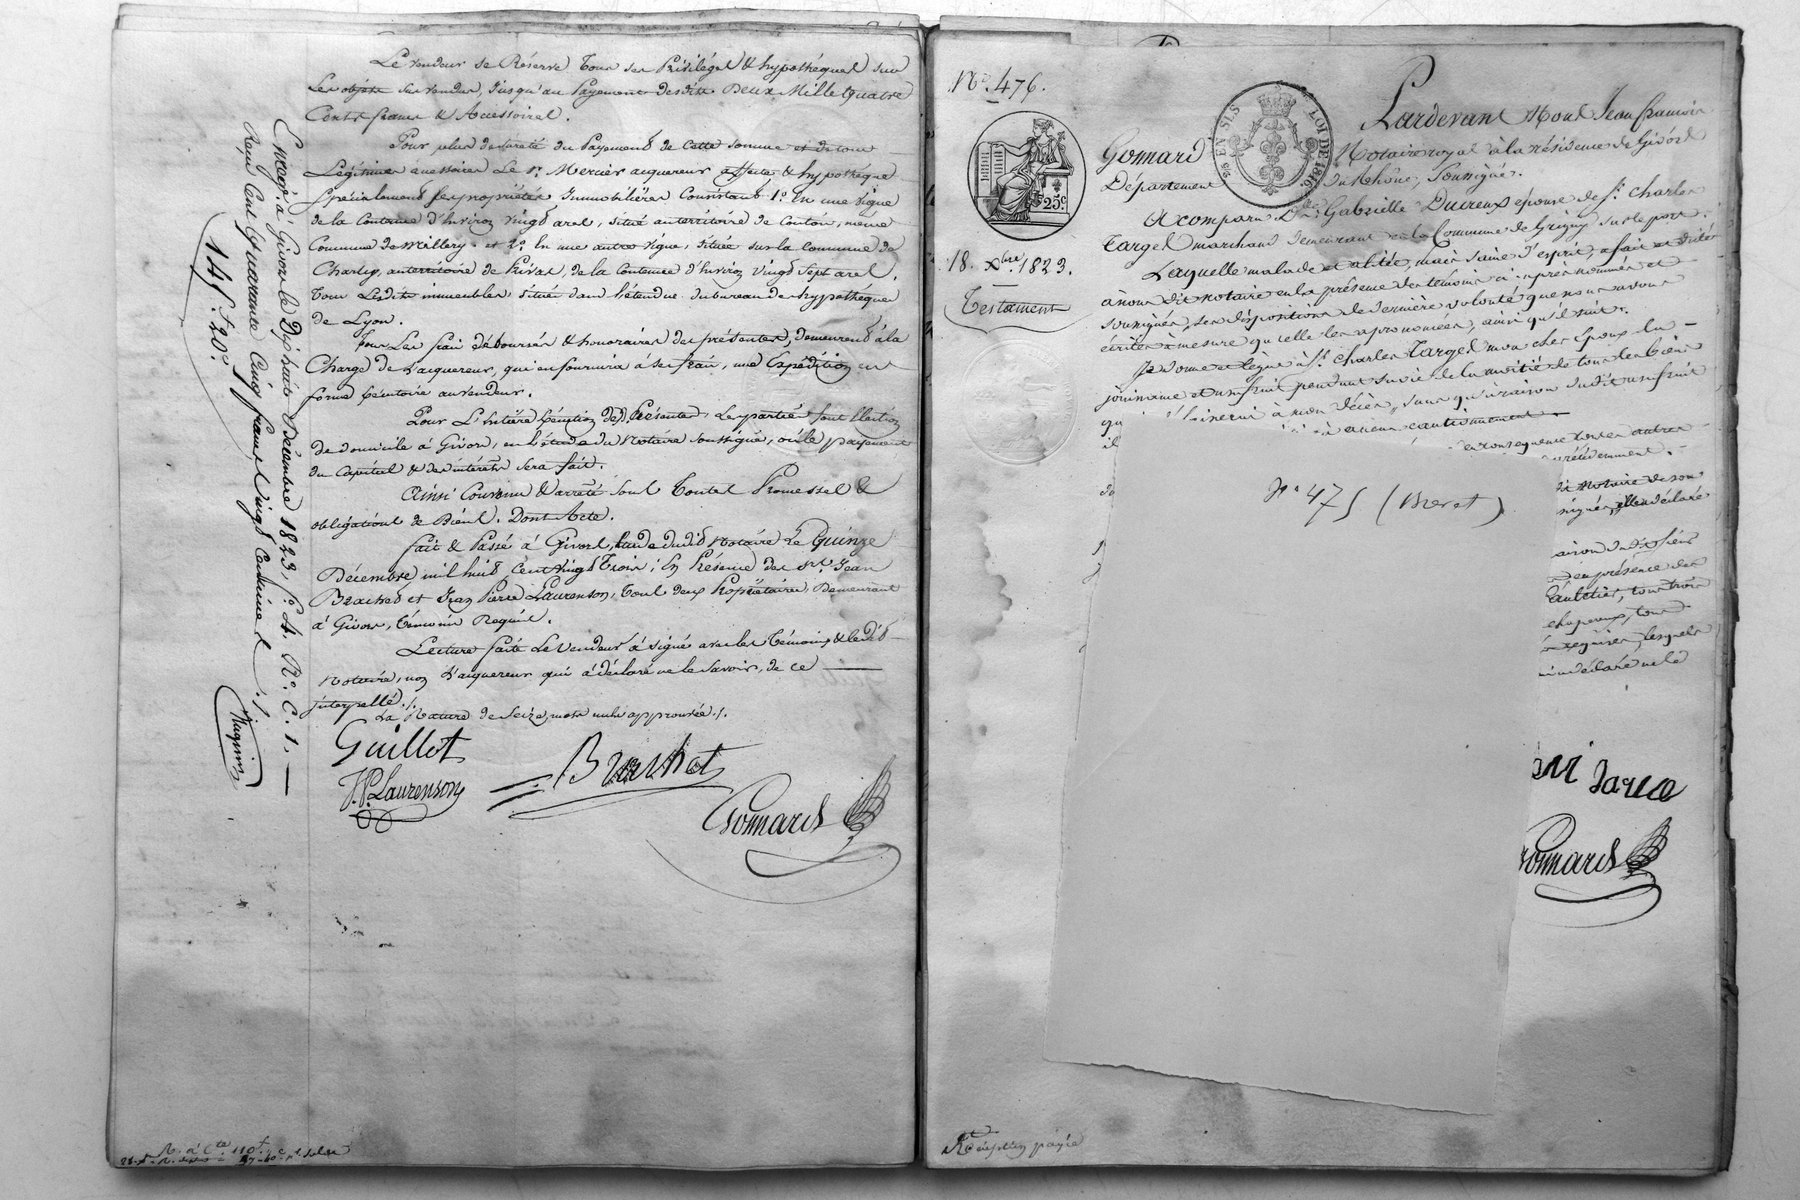 Le vendeur se Réserve Tous ses Privilèges & hypothèques sur
Les objets sus vendus, jusqu'au Payement desdits Deux Mille Quatre
Cents francs & Accessoires.
Pour plus de sureté du Payement de cette somme et de tous
Légitimes accessoires Le Sr. Mercier acquereur affecte & hypothèque
Spécialement ses propriétés Immobilières Consistant 1o. En une vigne
de la Contenue d'hviron vingt ares, situé au territoire de Coutou, même
Commune de Millery. et 2o. En une autre vigne, située sur la commune de
Charly, au territoire de Privat, de la Contenue d'hviron vingt sept ares.
Tous Lesdits immeubles situés dans l'étendue du bureau des hypothèques
de Lyon.
Les frais déboursés & honoraires des présentes, demeurent à la
Charge de l'acquereur, qui en fournira à ses frais, une Expédition en
forme Exécutoire au vendeur.
Pour L'Entière Exécution des Présentes, Les parties font Election
de domicile à Givors, en l'étude du Notaire soussigné, où le payement
du Capital & des intérêts sera fait.
Ainsi Convenu & arrêté sous Toutes Promesses &
obligations de Biens. Dont Acte.
fait & Passé à Givors, Etude dudit Notaire Le Quinze
Décembre mil huit cent vingt Trois; En Présence des Srs. Jean
Brachet et Jean Pierre Laurenson, Tous deux Propriétaires, Demeurant
à Givors, témoins Requis.
Lecture faite Le Vendeur à signé avec les Témoins & ledit
Notaire, non L'acquereur qui à déclaré ne le savoir, de ce
interpellé./.
La Rature de Seize mots nuls approuvée./.
Guillot
J.P. Laurenson
Brachet
Gonnard
Enreg. à Givors le Dix huit Décembre 1823, fo. 4 Ro. C. 1.
Reçu Cent Quarante Cinq francs Vingt Centimes
14 f. 20c.
No. 476.
25c
EN SUS
LOI DE 1816.
18. Xbre. 1823.
Testament
Pardevant Nous Jean francois
Gonnard Notaire royal à la résidence de Givors
Département du Rhône, Soussigné.
A comparu De. Gabrielle Ducreux épouse de Sr. Charles
Targe marchand demeurant en la Commune de Grigny sur le port.
Laquelle malade et alitée, mais saine d'esprit, a fait et dicté
à nous dit notaire en la présence des témoins ci-après nommés et
soussignés, ses dispositions de dernière volonté que nous avons
écrites à mesure qu'elle les a prononcées, ainsi qu'il suit.
Je donne et lègue à Sr. Charles Targe mon cher époux la
jouissance et usufruit pendant sa vie de la moitié de tous les biens
à mon décès, sans qu'à raison dudit usufruit
à aucun cautionnement
en conséquence toutes autres
précédemment.
notaire de son
elle a déclaré
en présence des
tous trois
chapeaux, tous
requis, lesquels
déclaré ne le
No. 475 (Brevet)
Targe
Gonnard
Réception payée